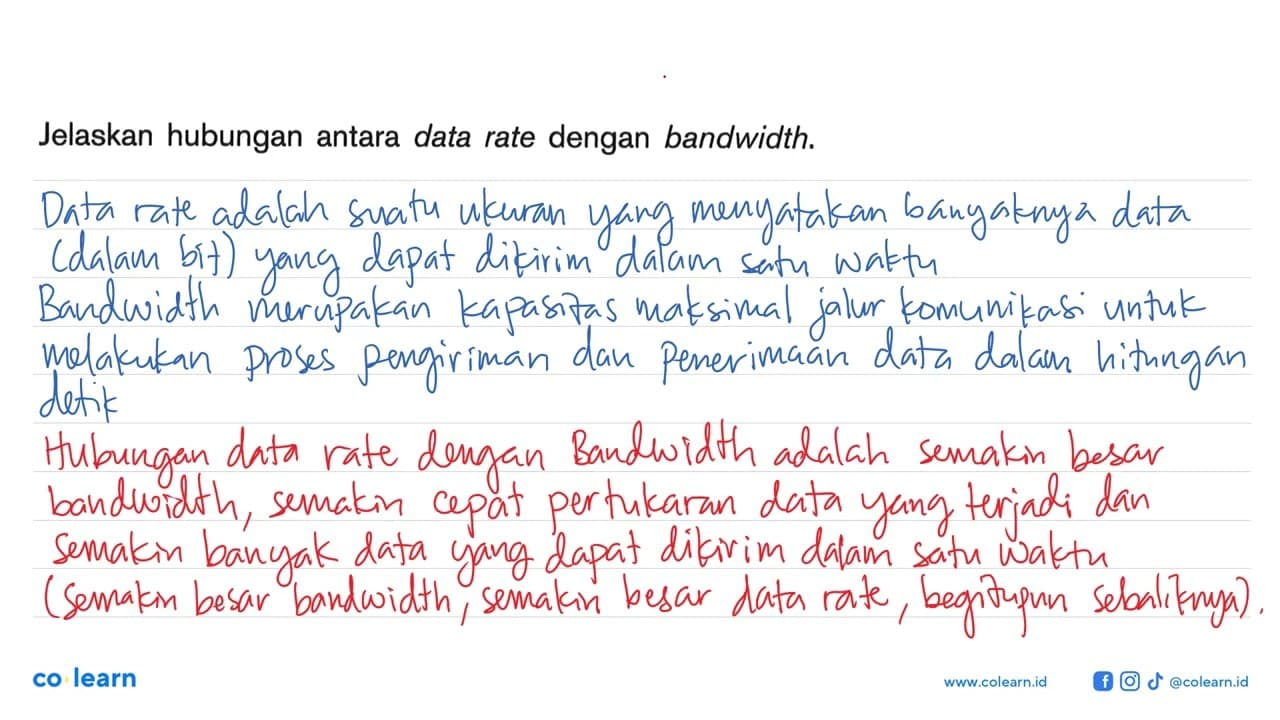 Jelaskan hubungan antara data rate dengan bandwidth.
Data rate adalah suatu ukuran yang menyatakan banyaknya data
(dalam bit) yang dapat dikirim dalam satu waktu
Bandwidth merupakan kapasitas maksimal jalur komunikasi untuk
melakukan proses pengiriman dan penerimaan data dalam hitungan
detik
Hubungan data rate dengan Bandwidth adalah semakin besar
bandwidth, semakin cepat pertukaran data yang terjadi dan
semakin banyak data yang dapat dikirim dalam satu waktu
(semakin besar bandwidth, semakin besar data rate, begitupun sebaliknya).
co learn
www.colearn.id
@colearn.id